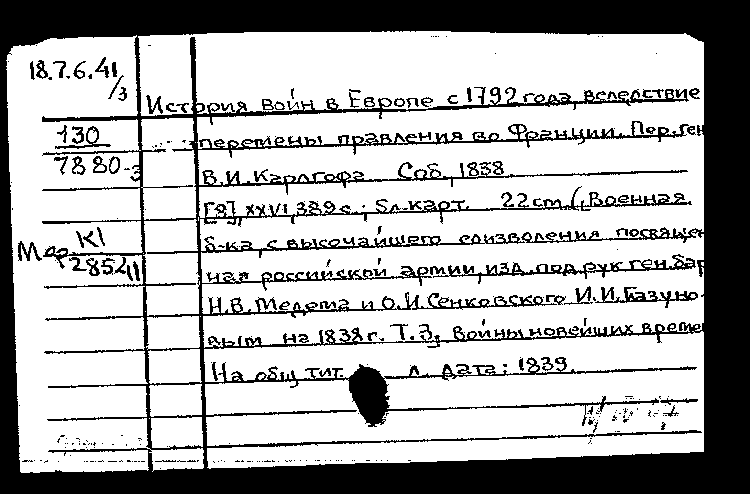 18.7.6.41/3
История войн в Европе с 1792 года, вследствие
130
перемены правления во Франции. Пер. ген
7880-3
В.И. Карлгофа Спб., 1838.
[8], XXVI, 389 с.; 5 л. карт. 22 cm. (, Военная
Мар K1
28521
б-ка, с высочайшего соизволения посвящен
ная российской армии, изд. под рук ген. бар
Н.В. Медема и О.И. Сенковского И.И. Глазуно-
вым на 1838 г. Т. 3, Войны новейших времен
На общ тит. л. дата: 1839.